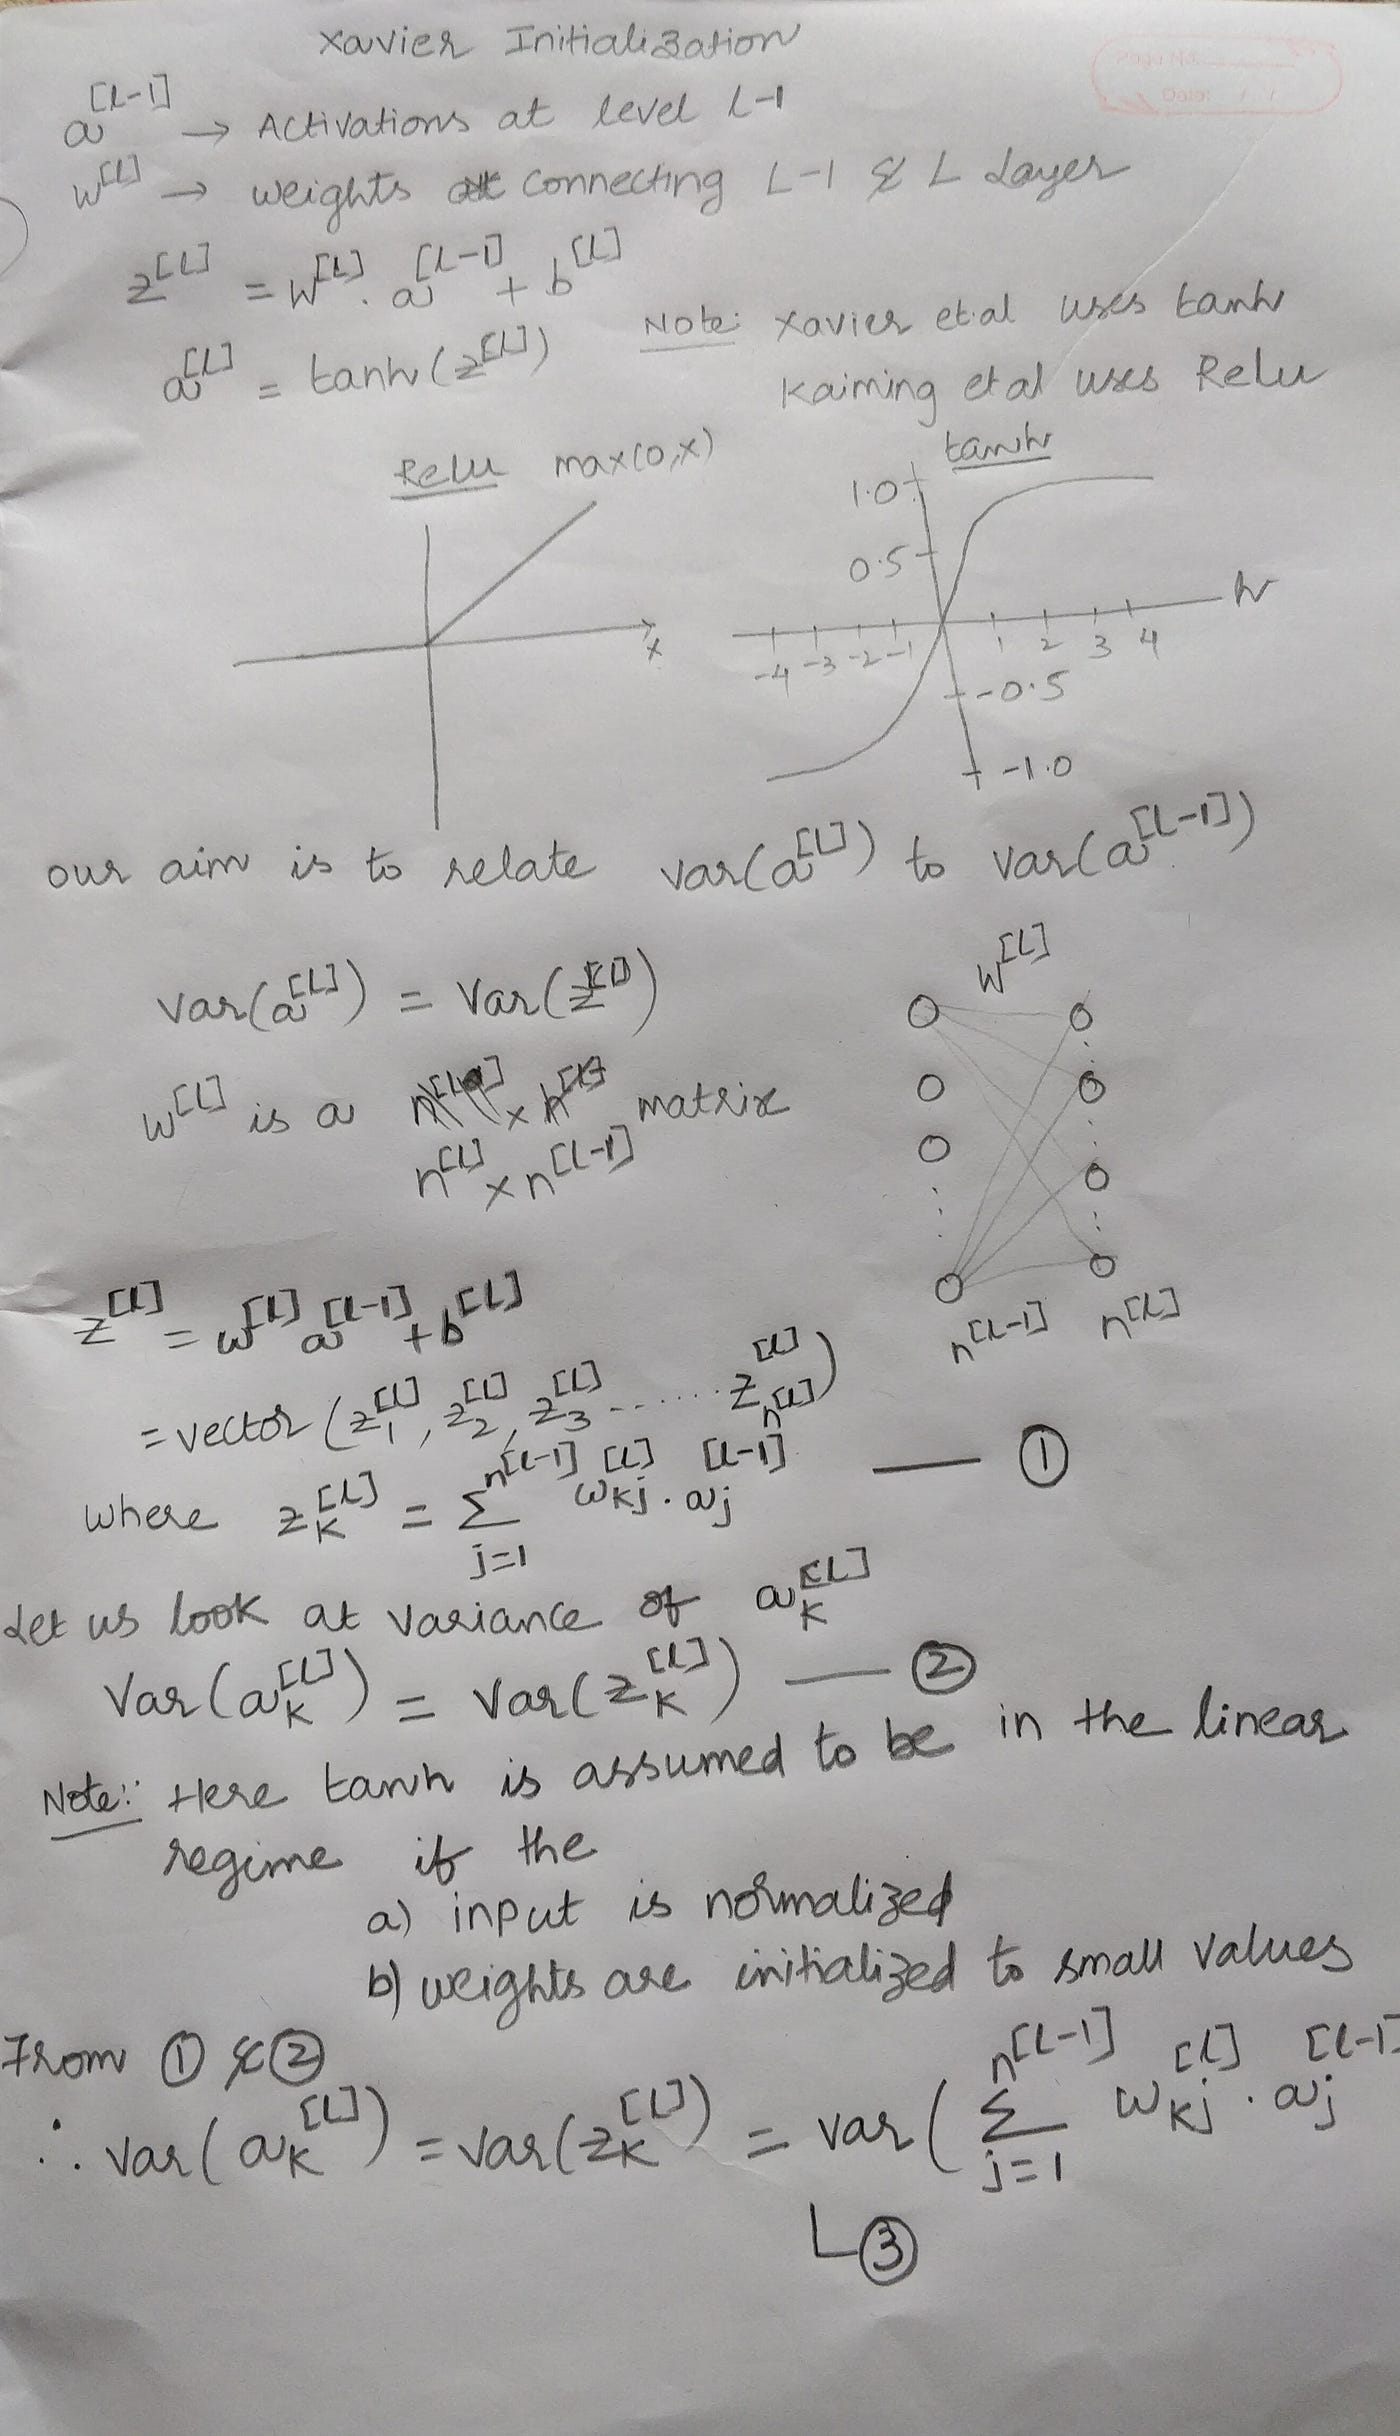 Xavier Initialization
a^[L-1] → Activations at level L-1
w^[L] → weights connecting L-1 & L Layer
z^[L] = w^[L] . a^[L-1] + b^[L]
a^[L] = tanh(z^[L])
Note: Xavier et.al uses tanh
Kaiming et al uses Relu
Relu max(0,x)
x
tanh
1.0
0.5
h
-4 -3 -2 -1 1 2 3 4
-0.5
-1.0
our aim is to relate var(a^[L]) to var(a^[L-1])
w^[L]
Var(a^[L]) = Var(z^[L])
w^[L] is a matrix
n^[L] × n^[L-1]
n^[L-1] n^[L]
z^[L] = w^[L] a^[L-1] + b^[L]
= vector (z_1^[L], z_2^[L], z_3^[L] ........ z_n^[L]^[L])
where z_K^[L] = Σ_{j=1}^{n^[L-1]} w_Kj^[L] . a_j^[L-1] — ①
Let us look at variance of a_K^[L]
Var(a_K^[L]) = Var(z_K^[L]) — ②
Note:: Here tanh is assumed to be in the linear
regime if the
a) input is normalized
b) weights are initialized to small values
From ① & ②
∴ var(a_K^[L]) = var(z_K^[L]) = var(Σ_{j=1}^{n^[L-1]} w_Kj^[L] . a_j^[L-1]
③